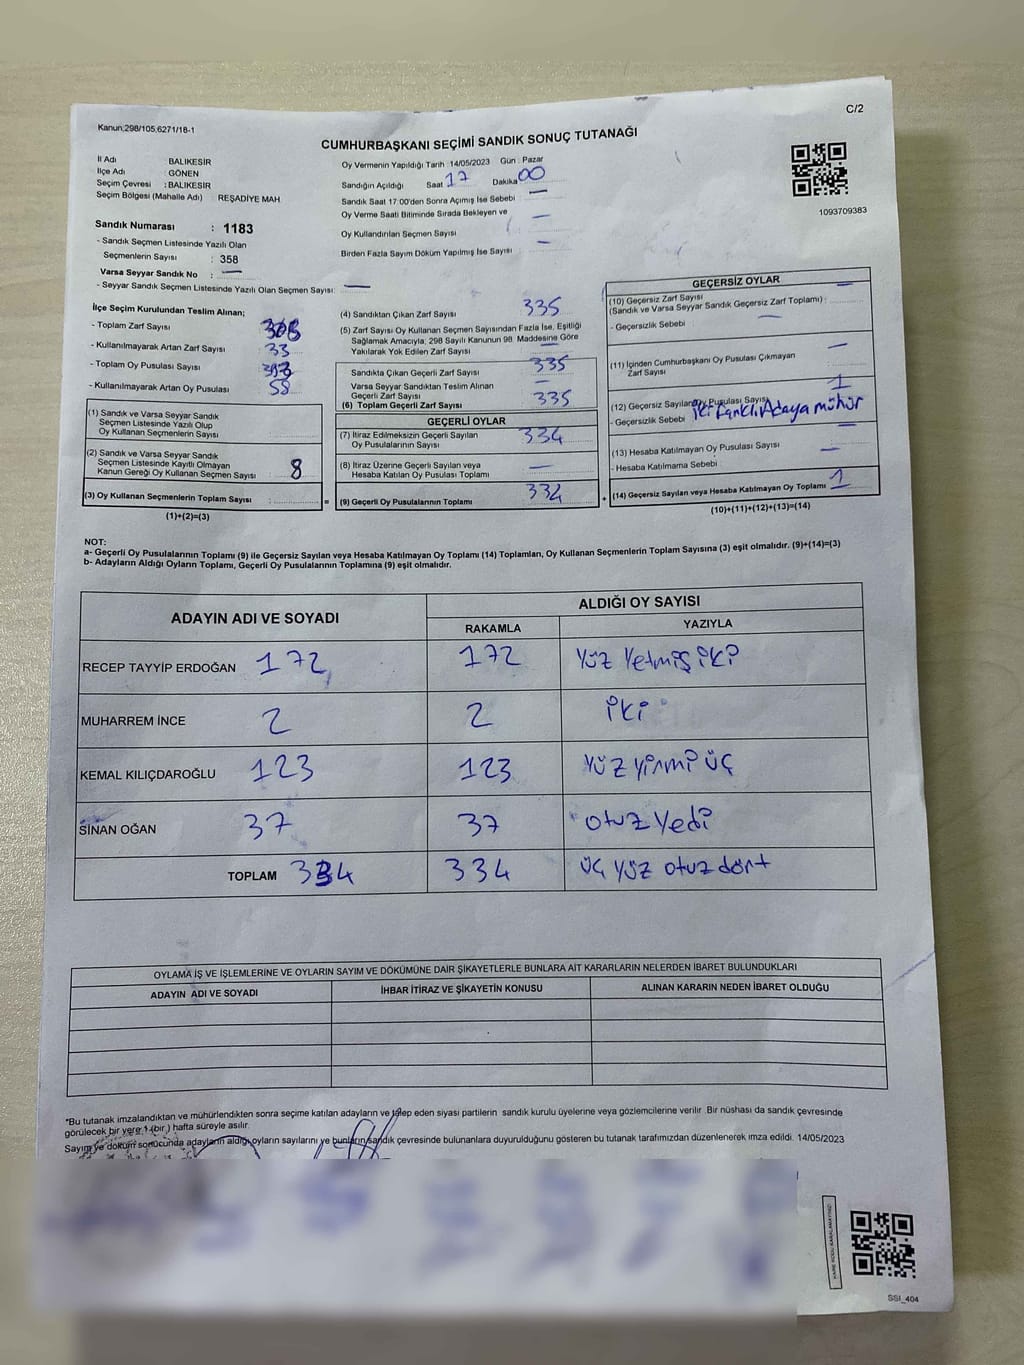 C/2
Kanun;298/105,6271/18-1
CUMHURBAŞKANI SEÇİMİ SANDIK SONUÇ TUTANAĞI
1093709383
İl Adı BALIKESİR
İlçe Adı GÖNEN
Seçim Çevresi : BALIKESİR
Seçim Bölgesi (Mahalle Adı) REŞADİYE MAH
Sandık Numarası : 1183
- Sandık Seçmen Listesinde Yazılı Olan
Seçmenlerin Sayısı : 358
Varsa Seyyar Sandık No : —
- Seyyar Sandık Seçmen Listesinde Yazılı Olan Seçmen Sayısı: —
Oy Vermenin Yapıldığı Tarih : 14/05/2023 Gün : Pazar
Sandığın Açıldığı Saat 17 Dakika 00
Sandık Saat 17:00'den Sonra Açımış İse Sebebi : —
Oy Verme Saati Bitiminde Sırada Bekleyen ve
Oy Kullandırılan Seçmen Sayısı —
Birden Fazla Sayım Döküm Yapılmış İse Sayısı —
İlçe Seçim Kurulundan Teslim Alınan;
- Toplam Zarf Sayısı
- Kullanılmayarak Artan Zarf Sayısı 33
- Toplam Oy Pusulası Sayısı
- Kullanılmayarak Artan Oy Pusulası 58
(1) Sandık ve Varsa Seyyar Sandık
Seçmen Listesinde Yazılı Olup
Oy Kullanan Seçmenlerin Sayısı
(2) Sandık ve Varsa Seyyar Sandık
Seçmen Listesinde Kayıtlı Olmayan
Kanun Gereği Oy Kullanan Seçmen Sayısı 8
(3) Oy Kullanan Seçmenlerin Toplam Sayısı :
(1)+(2)=(3)
(4) Sandıktan Çıkan Zarf Sayısı 335
(5) Zarf Sayısı Oy Kullanan Seçmen Sayısından Fazla İse, Eşitliği
Sağlamak Amacıyla; 298 Sayılı Kanunun 98. Maddesine Göre
Yakılarak Yok Edilen Zarf Sayısı —
Sandıkta Çıkan Geçerli Zarf Sayısı 335
Varsa Seyyar Sandıktan Teslim Alınan
Geçerli Zarf Sayısı —
(6) Toplam Geçerli Zarf Sayısı 335
GEÇERLİ OYLAR
(7) İtiraz Edilmeksizin Geçerli Sayılan
Oy Pusulalarının Sayısı 334
(8) İtiraz Üzerine Geçerli Sayılan veya
Hesaba Katılan Oy Pusulası Toplamı —
(9) Geçerli Oy Pusulalarının Toplamı 334
GEÇERSİZ OYLAR
(10) Geçersiz Zarf Sayısı —
(Sandık ve Varsa Seyyar Sandık Geçersiz Zarf Toplamı) :
- Geçersizlik Sebebi —
(11) İçinden Cumhurbaşkanı Oy Pusulası Çıkmayan
Zarf Sayısı —
(12) Geçersiz Sayılan Oy Pusulası Sayısı 1
- Geçersizlik Sebebi iki farklı Adaya mühür
(13) Hesaba Katılmayan Oy Pusulası Sayısı —
- Hesaba Katılmama Sebebi —
(14) Geçersiz Sayılan veya Hesaba Katılmayan Oy Toplamı 1
(10)+(11)+(12)+(13)=(14)
NOT:
a- Geçerli Oy Pusulalarının Toplamı (9) ile Geçersiz Sayılan veya Hesaba Katılmayan Oy Toplamı (14) Toplamları, Oy Kullanan Seçmenlerin Toplam Sayısına (3) eşit olmalıdır. (9)+(14)=(3)
b- Adayların Aldığı Oyların Toplamı, Geçerli Oy Pusulalarının Toplamına (9) eşit olmalıdır.
ADAYIN ADI VE SOYADI ALDIĞI OY SAYISI
RAKAMLA YAZIYLA
RECEP TAYYİP ERDOĞAN 172 172 Yüz Yetmiş iki
MUHARREM İNCE 2 2 iki
KEMAL KILIÇDAROĞLU 123 123 Yüz yirmi üç
SİNAN OĞAN 37 37 otuz Yedi
TOPLAM 334 334 üç yüz otuz dört
OYLAMA İŞ VE İŞLEMLERİNE VE OYLARIN SAYIM VE DÖKÜMÜNE DAİR ŞİKAYETLERLE BUNLARA AİT KARARLARIN NELERDEN İBARET BULUNDUKLARI
ADAYIN ADI VE SOYADI İHBAR İTİRAZ VE ŞİKAYETİN KONUSU ALINAN KARARIN NEDEN İBARET OLDUĞU
*Bu tutanak imzalandıktan ve mühürlendikten sonra seçime katılan adayların ve talep eden siyasi partilerin sandık kurulu üyelerine veya gözlemcilerine verilir. Bir nüshası da sandık çevresinde
görülecek bir yere 1 (bir ) hafta süreyle asılır.
Sayım ve döküm sonucunda adayların aldığı oyların sayılarını ve bunların sandık çevresinde bulunanlara duyurulduğunu gösteren bu tutanak tarafımızdan düzenlenerek imza edildi. 14/05/2023
KARE KODU KARALAMAYINIZ!
SSI_404